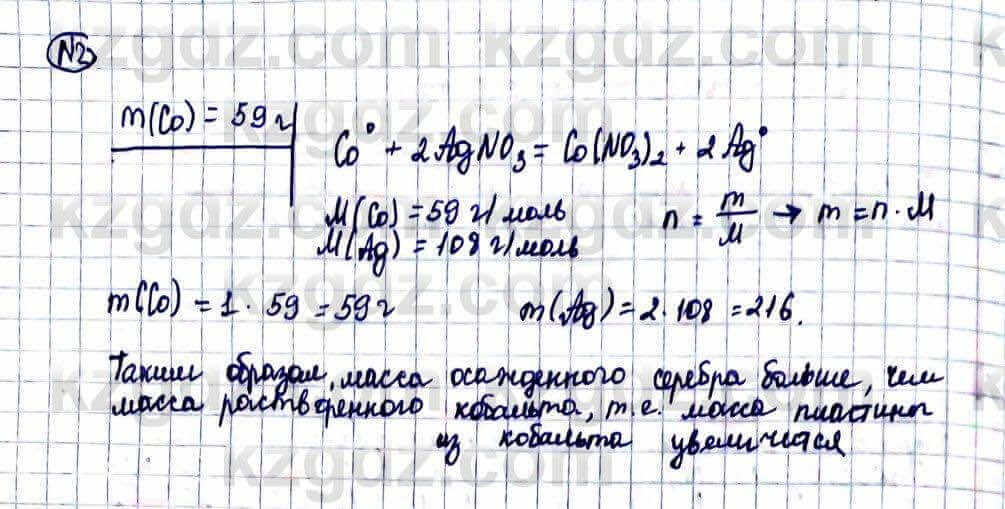 N2
m(Co) = 59 г
Co⁰ + 2AgNO₃ = Co(NO₃)₂ + 2Ag⁰
M(Co) = 59 г/моль
n = m/M → m = n · M
M(Ag) = 108 г/моль
m(Co) = 1 · 59 = 59 г m(Ag) = 2 · 108 = 216.
Таким образом, масса осажденного серебра больше, чем
масса растворенного кобальта, т.е. масса пластины
из кобальта увеличится
kzgdz.com